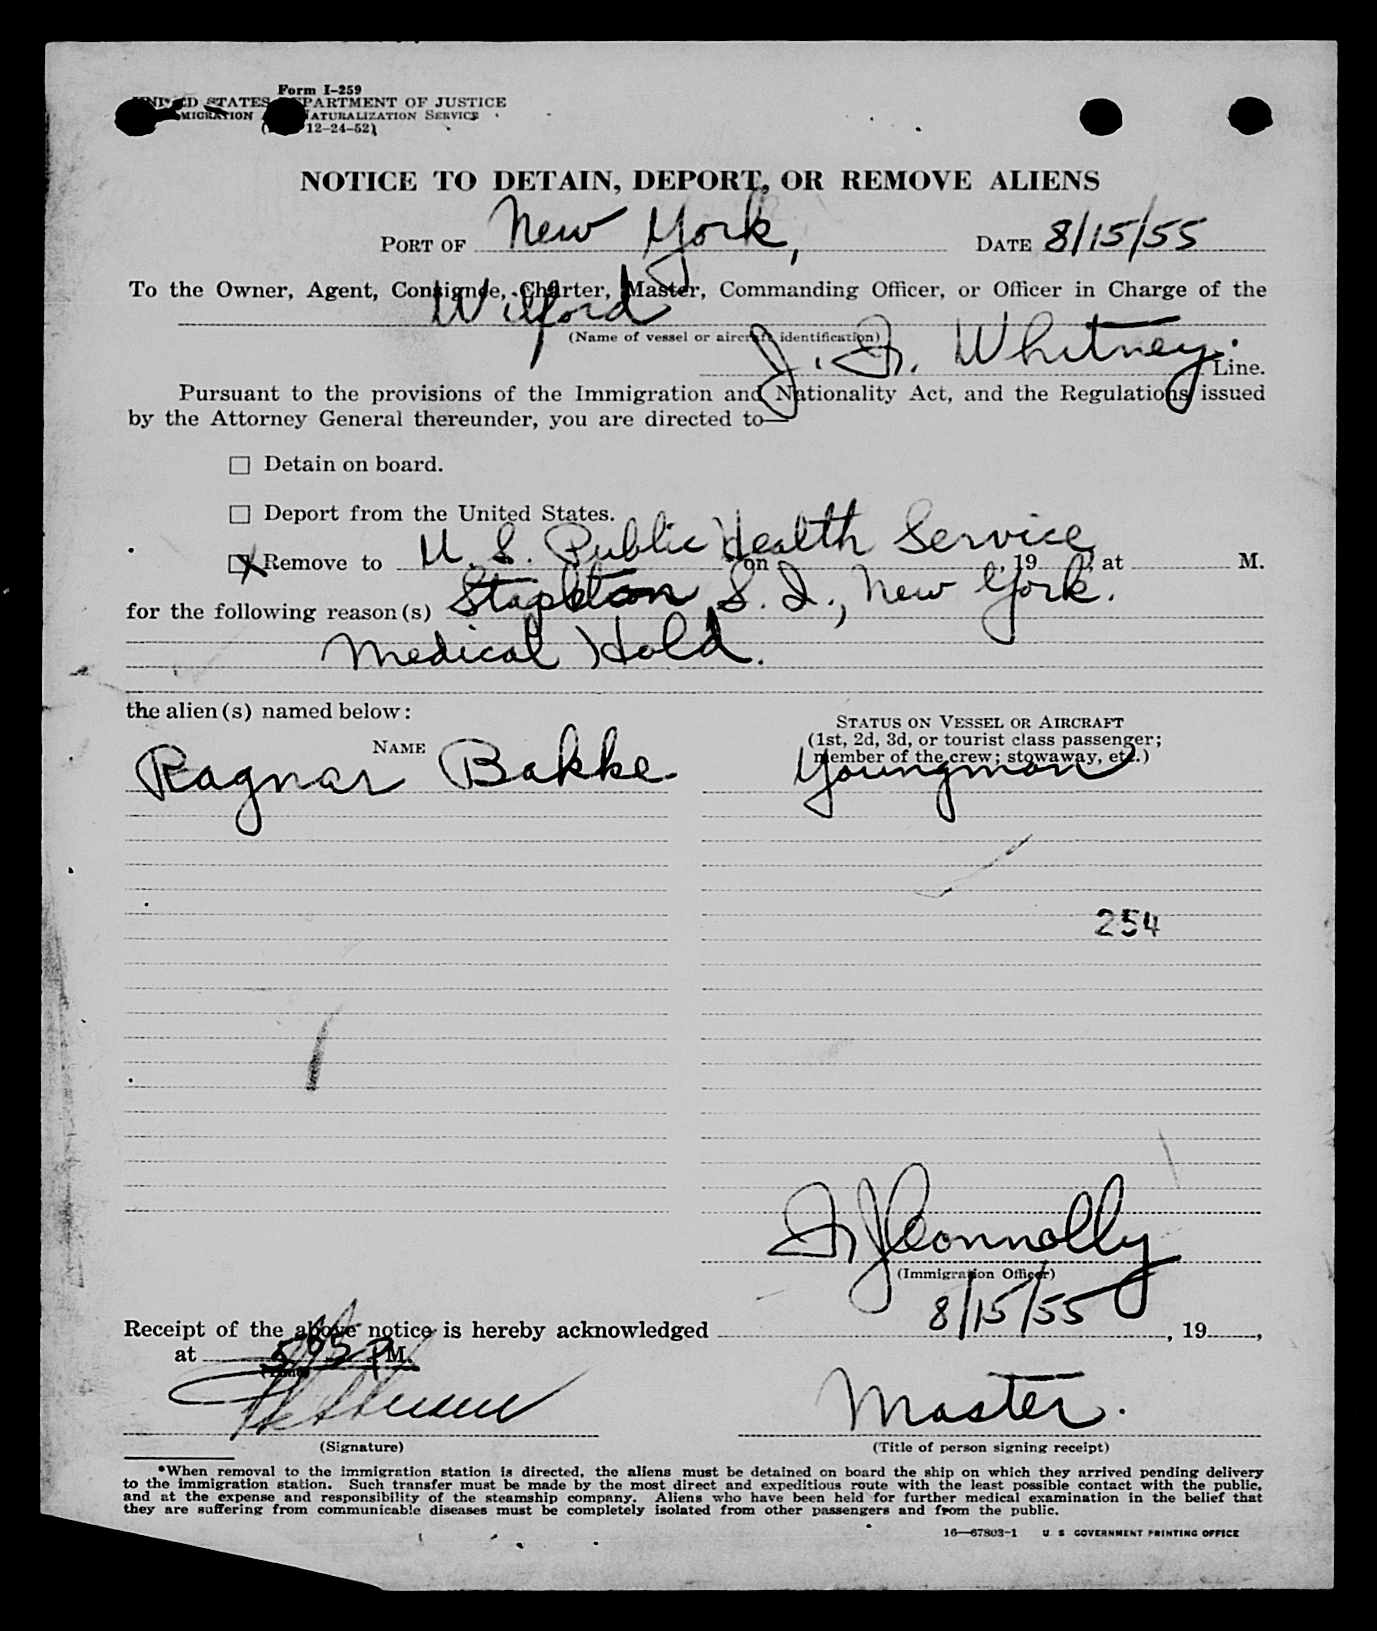 Form I-259
UNITED STATES DEPARTMENT OF JUSTICE
IMMIGRATION NATURALIZATION SERVICE
12-24-52)
NOTICE TO DETAIN, DEPORT, OR REMOVE ALIENS
PORT OF New York, DATE 8/15/55
To the Owner, Agent, Consignee, Charter, Master, Commanding Officer, or Officer in Charge of the
Wilford
(Name of vessel or aircraft identification)
J. F. Whitney. Line.
Pursuant to the provisions of the Immigration and Nationality Act, and the Regulations issued
by the Attorney General thereunder, you are directed to—
☐ Detain on board.
☐ Deport from the United States.
☒ Remove to U. S. Public Health Service on , 19 , at M.
for the following reason(s) Stapleton, S. I., New York.
Medical Hold.
the alien(s) named below:
STATUS ON VESSEL OR AIRCRAFT
NAME (1st, 2d, 3d, or tourist class passenger;
member of the crew; stowaway, etc.)
Ragnar Bakke. Youngman
254
F J Connolly
(Immigration Officer)
Receipt of the above notice is hereby acknowledged 8/15/55, 19 ,
at 5 05 P M.
(Time)
Master.
(Signature) (Title of person signing receipt)
*When removal to the immigration station is directed, the aliens must be detained on board the ship on which they arrived pending delivery
to the immigration station. Such transfer must be made by the most direct and expeditious route with the least possible contact with the public,
and at the expense and responsibility of the steamship company. Aliens who have been held for further medical examination in the belief that
they are suffering from communicable diseases must be completely isolated from other passengers and from the public.
16—67803-1 U. S. GOVERNMENT PRINTING OFFICE